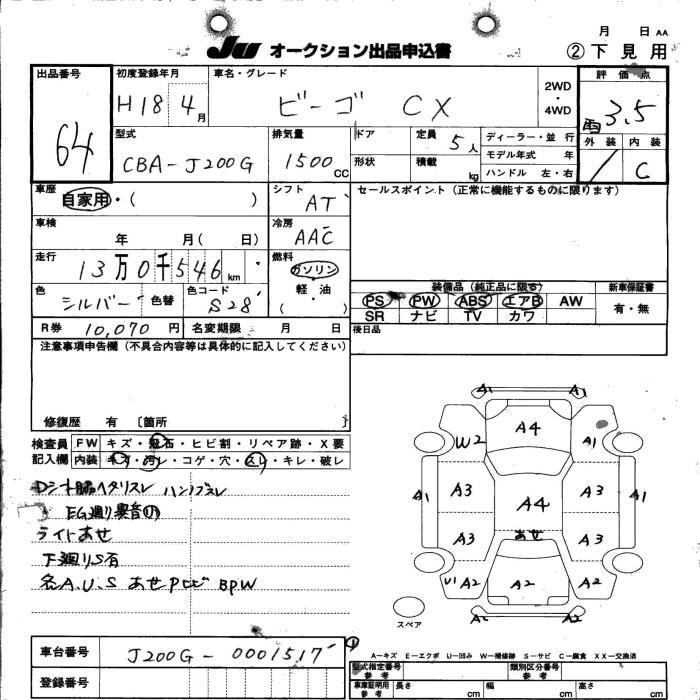 月 日 AA
JU オークション出品申込書 ②下見用
出品番号 初度登録年月 車名・グレード 2WD・4WD 評価点
64 H18 4月 ビーゴ CX 3.5
型式 排気量 ドア 定員 5人 ディーラー・並行 外装 内装
CBA-J200G 1500CC 形状 積載 kg モデル年式 年 C
ハンドル 左・右
車歴 シフト セールスポイント(正常に機能するものに限ります)
自家用・( ) AT
車検 冷房
年 月( 日) AAC
走行 燃料
13万0千546km ガソリン
軽油
( )
色 色替 色コード
シルバー S28
装備品(純正品に限る) 新車保証書
PS PW ABS エアB AW 有・無
SR ナビ TV カワ
R券 10,070円 名変期限 月 日 後日品
注意事項申告欄(不具合内容等は具体的に記入してください)
修復歴 有 〔箇所 〕
検査員 FW キズ・飛石・ヒビ割・リペア跡・X要
記入欄 内装 キズ・汚レ・コゲ・穴・スレ・キレ・破レ
Dシート脇ヘタリスレ ハンドルスレ
EG廻り異音
ライトあせ
下廻りS有
各A.U.S あせ BPW
A1 A1
A4
W2 A1
A1 A3 A3 A1
A4
A3 あせ A3
U1 A2 A2 A2
A2 A2
スペア
A-キズ E-エクボ U-凹み W-補修跡 S-サビ C-腐食 XX-交換済
車台番号 J200G-0001517
登録番号
型式指定番号 参考 類別区分番号 参考
車庫証明用 参考 長さ cm 幅 cm 高さ cm